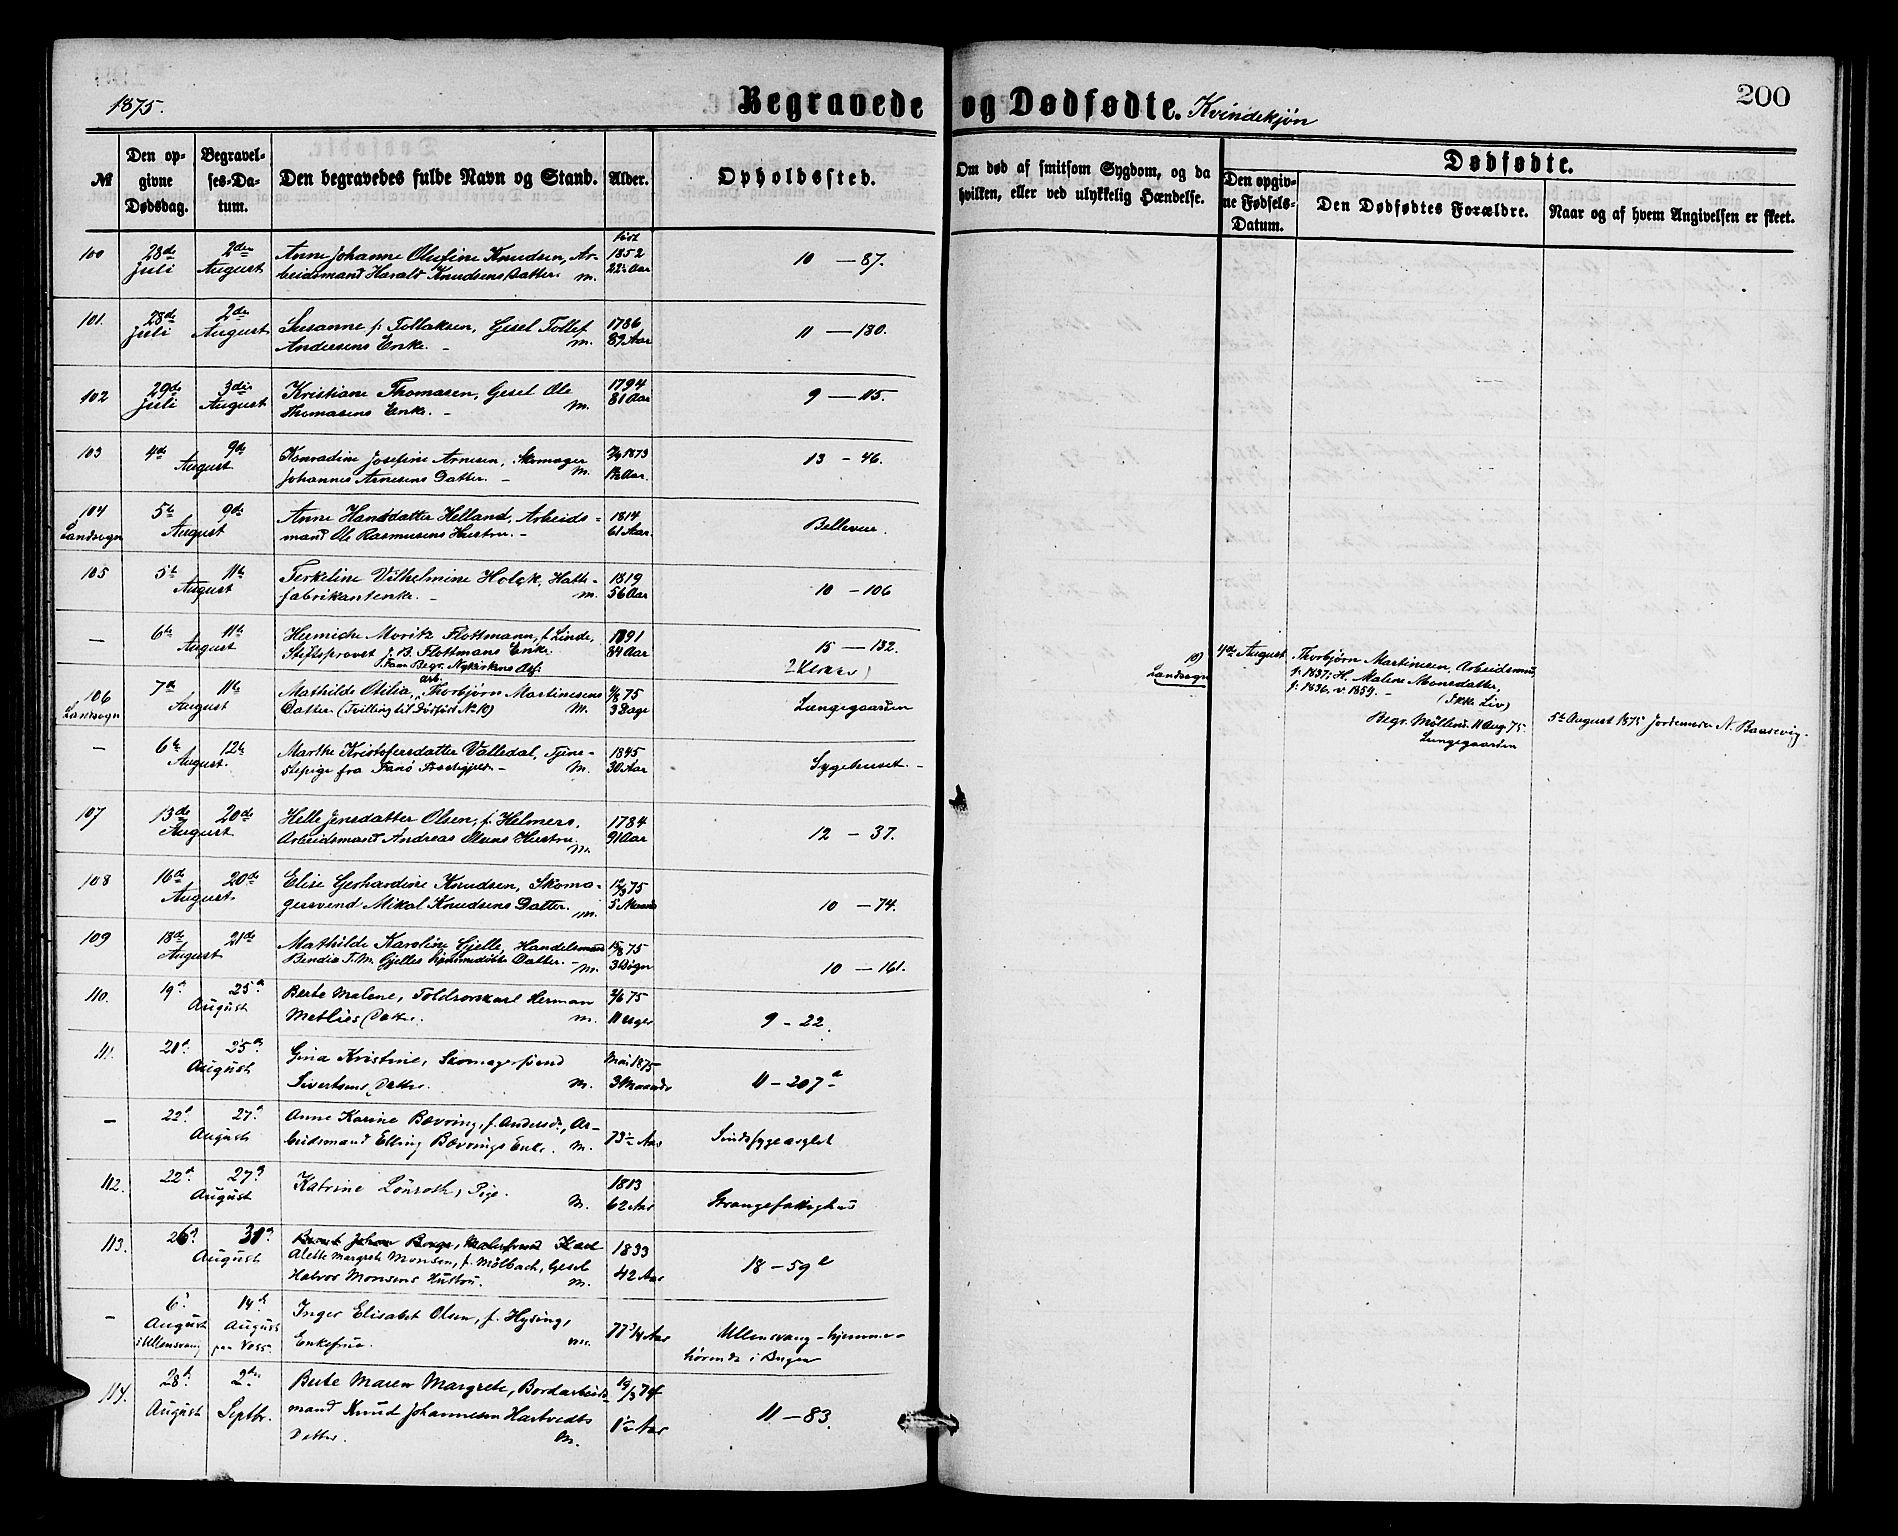 1875.
Begravede og Dødfødte. Kvindekjøn
200
№
Den opgivne Dødsdag.
Begravelses-Datum.
Den begravedes fulde Navn og Stand.
Alder.
Opholdssted.
Om død af smitsom Sygdom, og da
hvilken, eller ved ulykkelig Hændelse.
Dødfødte.
Den opgivne Fødsels-Datum.
Den Dødfødtes Forældre.
Naar og af hvem Angivelsen er skeet.
100 28de Juli 2den August Anne Johanne Olufine Knudsen, Ar- født 1852 10 — 87.
beidsmand Harald Knudsens Datter. m. 22½ Aar
101. 28de Juli 2den August Susanne f. Tollaksen, Gesel Tollef 1786 11 — 180.
Andersens Enke. — m. 89 Aar
102 29de Juli 3die August Kristiane Thomasen, Gesel Ole 1794 9 — 115.
Thomasens Enke. — m. 81 Aar
103 4de 9de August Konradine Josefine Arnesen, Skomager 1873 13 — 46.
Johannes Arnesens Datter. — m. 1½ Aar.
104 5te 9de August Anne Hansdatter Helland, Arbeids- 1814 Bellevue.
Landsogn mand Ole Rasmusens Hustru. — 61 Aar.
105 5te 11te August Terkeline Vilhelmine Holck, Hatte- 1819 10 — 106
fabrikantenke. — m. 56 Aar
— 6te 11te August Moritz Flottmann, f. Linde, 1891 15 — 132.
Stiftsprovst J. B. Flottmans Enke. 84 Aar 2 Klasse
Fam. Begr. Nykirkens
106 7de 11te August Mathilde Otilia, arb. Thorbjørn Martinesens 75 Lungegaarden
Landsogn Datter. (Tvilling til Dødfødt No 10) m. 3 Dage
10)
Landsogn
4de August Thorbjørn Martinesen, Arbeidsmd,
f. 1837; H. Malene Monsdatter,
f. 1836, v. 1859. — (Ikke Liv)
Begr. Møllend. 11 Aug. 75.
Lungegaarden
5te August 1875 Jordemoder N. Baarevig.
— 6te 12te August. Marthe Kristofersdatter Valledal, Tjene- 1845 Sygehuset. —
stepige fra Fanø Præstegjeld. — m. 30 Aar
107 13de 20de August Helle Jensdatter Olsen, f. Helmers, 1784 12 — 37.
Arbeidsmand Andreas Olsens Hustru. m. 91 Aar
108 16de 20de August. Elise Gerhardine Knudsen, Skoma- 12/3 75 10 — 74.
gersvend Mikal Knudsens Datter. m. 5 Maaneder
109 18de 21de August Mathilde Karoline Gjelle, Handelsmand 15/8 75 10 — 161.
Bendix T. M. Gjelles hjemmedøbte Datter. — m. 3 Døgn
110. 19de 25de August Berte Malene, Toldrorskarl Herman 75 9 — 22.
Metlies Datter. m. 11 Uger
111. 21de 25de August Gina Kristine, Skomagersvend Mai 1875 11 — 207a
Sivertsens Datter. m. 3 Maaneder
— 22d 27d August Anne Karine Bævring, f. Andersd., Ar- 73½ Aar Sindssygeasylet
beidsmand Elling Bævrings Enke. m.
112. 22d 27d August Katrine Lönroth, Pige. 1813 Strangefattighus
m. 62 Aar
113. 26d 31d August Alette Margrete Monsen, f. Mølbach, Gesel 1833 18 — 59
Halvor Monsens Hustru. m. 42 Aar
— 6' August i Ullensvang 14d August paa Voss. Inger Elisabet Olsen, f. Hysing, 77¾ Aar Ullensvang — hjemme-
Enkefrue. m. hørende i Bergen
114. 28d August 2den Septbr. Berte Maren Margrete, Bordarbeids- 19/3 74 11 — 83.
mand Knud Johannesen Hartvedts 1½ Aar
Datter. m.